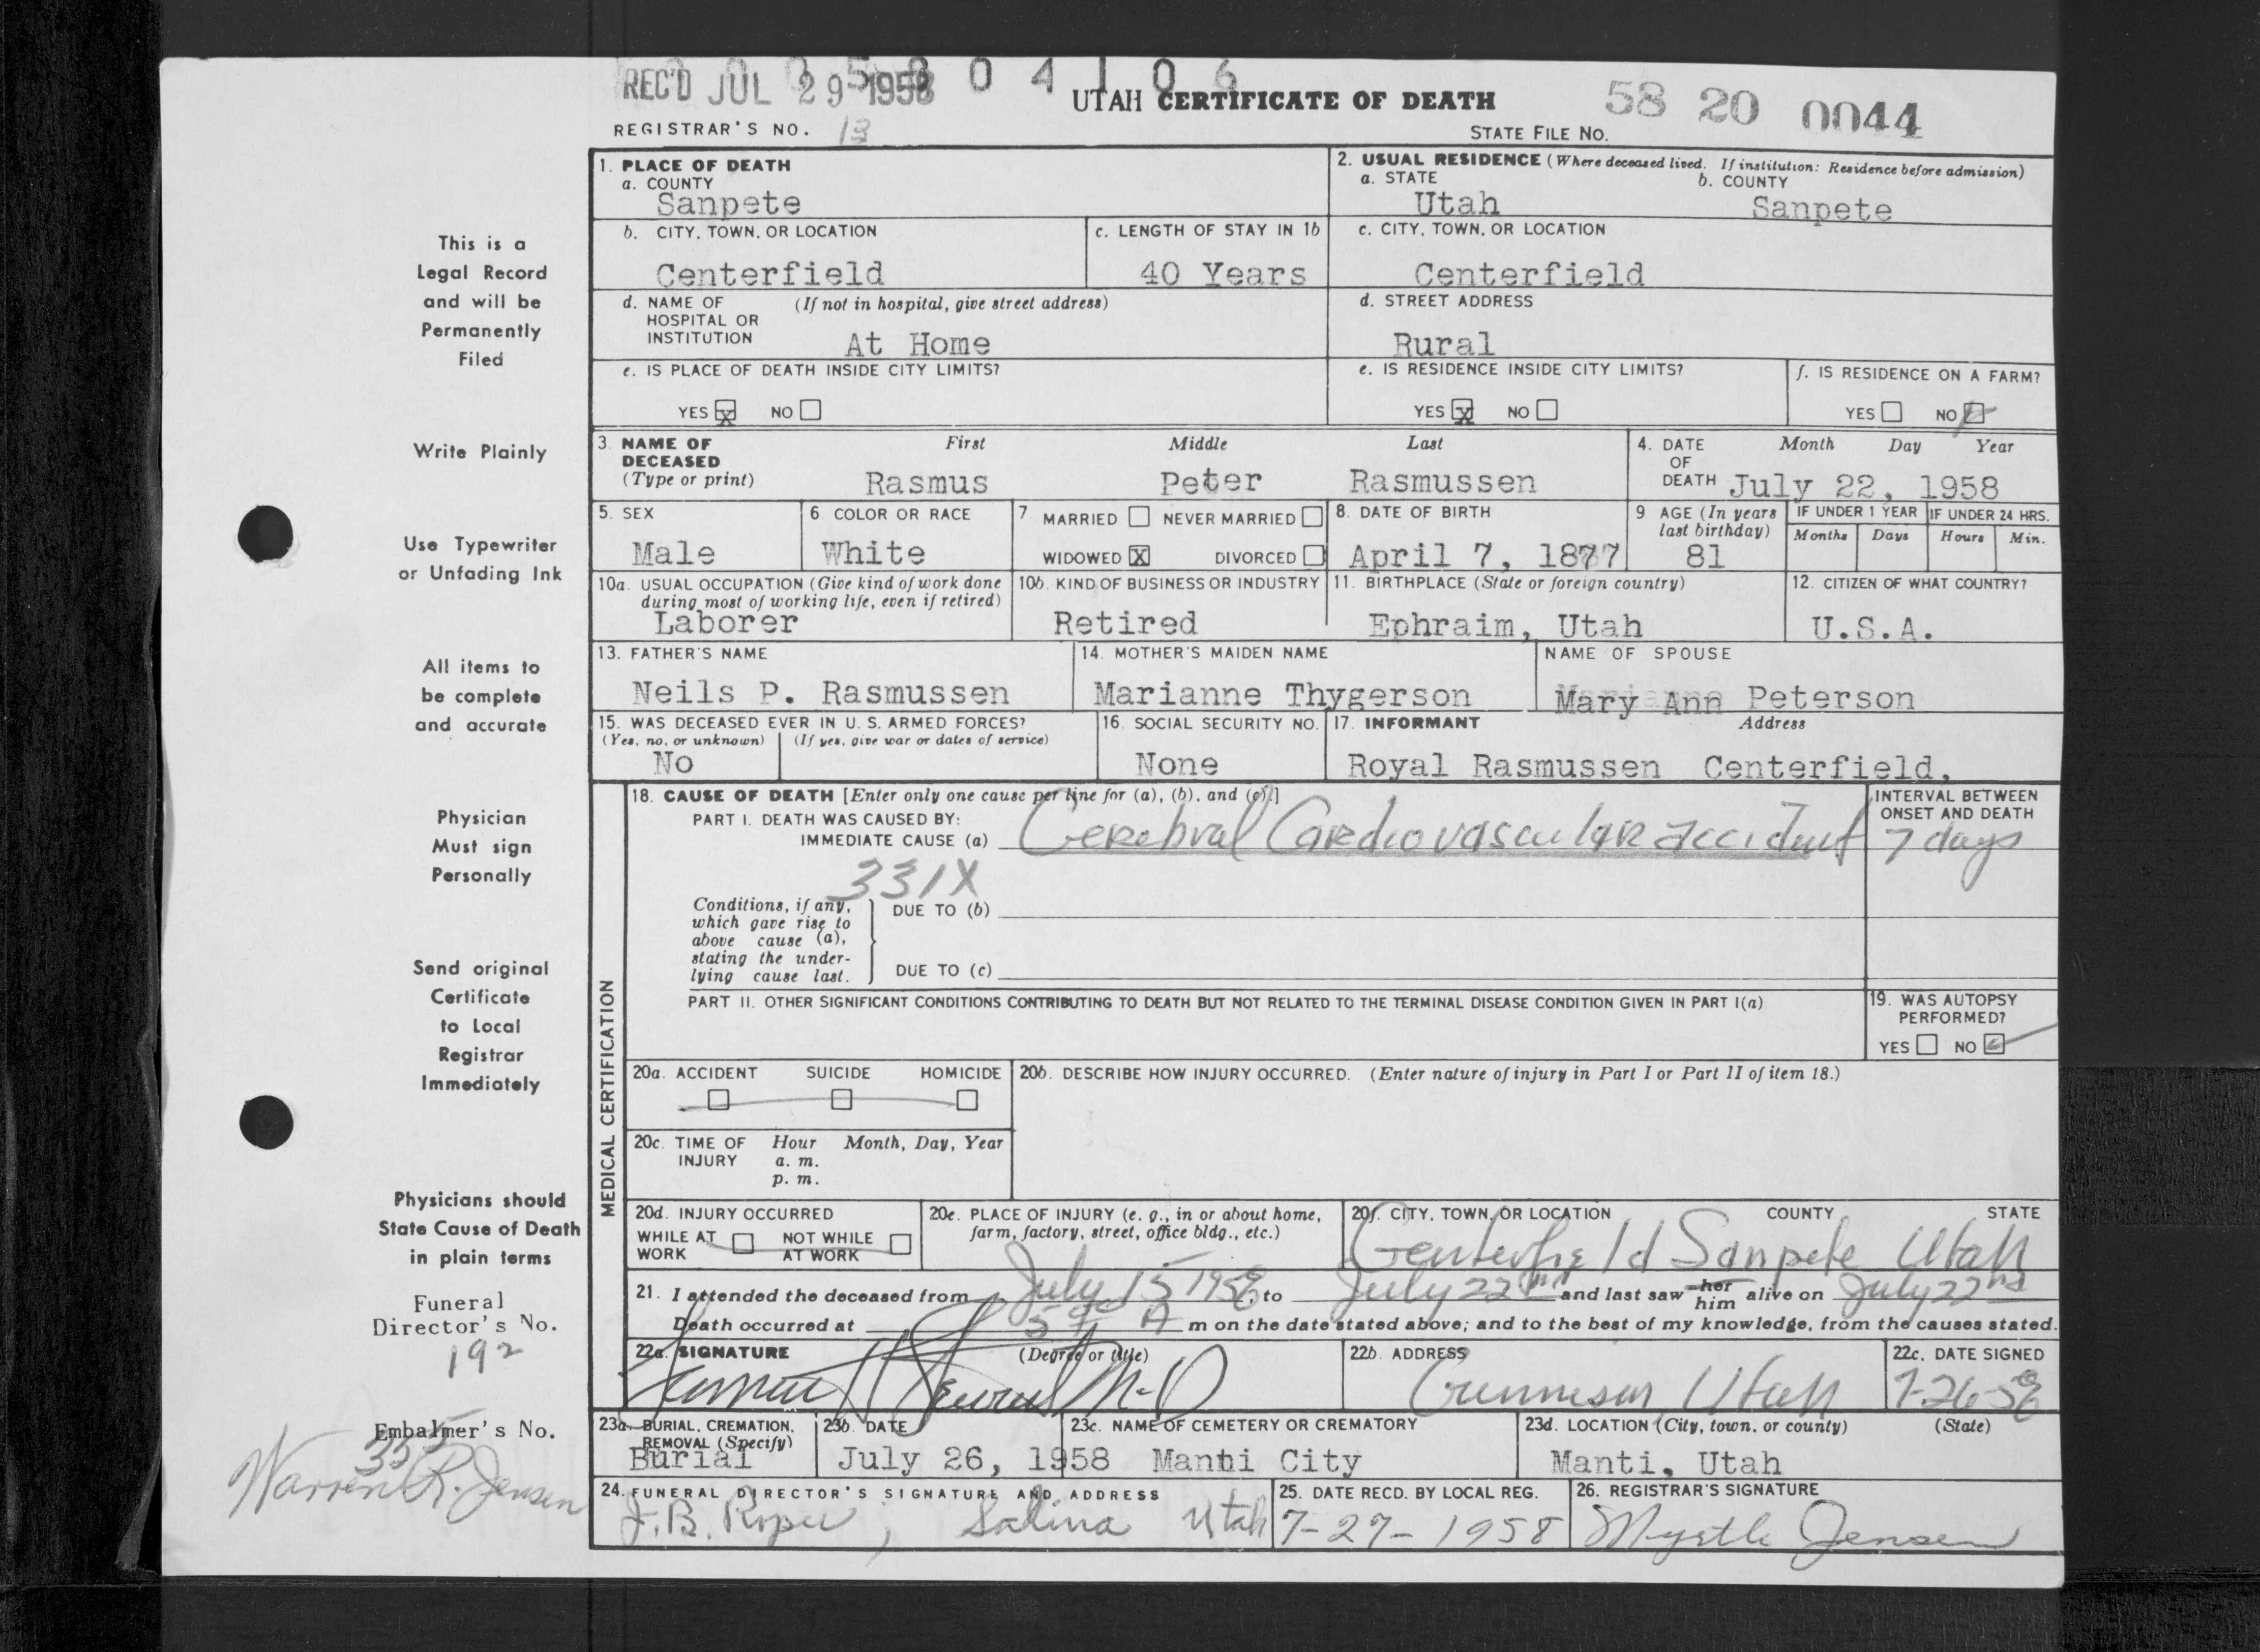 REC'D JUL 29 1958
UTAH CERTIFICATE OF DEATH
58 20 0044
REGISTRAR'S NO. 13
STATE FILE NO.
1. PLACE OF DEATH
a. COUNTY
Sanpete
2. USUAL RESIDENCE (Where deceased lived. If institution: Residence before admission)
a. STATE b. COUNTY
Utah Sanpete
b. CITY, TOWN, OR LOCATION
Centerfield
c. LENGTH OF STAY IN 1b
40 Years
c. CITY, TOWN, OR LOCATION
Centerfield
d. NAME OF (If not in hospital, give street address)
HOSPITAL OR
INSTITUTION At Home
d. STREET ADDRESS
Rural
e. IS PLACE OF DEATH INSIDE CITY LIMITS?
YES X NO
e. IS RESIDENCE INSIDE CITY LIMITS?
YES X NO
f. IS RESIDENCE ON A FARM?
YES NO
3. NAME OF DECEASED (Type or print)
First Middle Last
Rasmus Peter Rasmussen
4. DATE OF DEATH
Month Day Year
July 22, 1958
5. SEX
Male
6 COLOR OR RACE
White
7 MARRIED NEVER MARRIED
WIDOWED X DIVORCED
8. DATE OF BIRTH
April 7, 1877
9 AGE (In years last birthday)
81
IF UNDER 1 YEAR IF UNDER 24 HRS.
Months Days Hours Min.
10a. USUAL OCCUPATION (Give kind of work done
during most of working life, even if retired)
Laborer
10b. KIND OF BUSINESS OR INDUSTRY
Retired
11. BIRTHPLACE (State or foreign country)
Ephraim, Utah
12. CITIZEN OF WHAT COUNTRY?
U.S.A.
13. FATHER'S NAME
Neils P. Rasmussen
14. MOTHER'S MAIDEN NAME
Marianne Thygerson
NAME OF SPOUSE
Mary Ann Peterson
15. WAS DECEASED EVER IN U. S. ARMED FORCES?
(Yes, no, or unknown) (If yes, give war or dates of service)
No
16. SOCIAL SECURITY NO.
None
17. INFORMANT Address
Royal Rasmussen Centerfield,
MEDICAL CERTIFICATION
18. CAUSE OF DEATH [Enter only one cause per line for (a), (b), and (c).]
PART I. DEATH WAS CAUSED BY:
IMMEDIATE CAUSE (a) Cerebral Cardiovascular accident
INTERVAL BETWEEN
ONSET AND DEATH
7 days
331X
Conditions, if any,
which gave rise to
above cause (a),
stating the under-
lying cause last.
DUE TO (b)
DUE TO (c)
PART II. OTHER SIGNIFICANT CONDITIONS CONTRIBUTING TO DEATH BUT NOT RELATED TO THE TERMINAL DISEASE CONDITION GIVEN IN PART I(a)
19. WAS AUTOPSY
PERFORMED?
YES NO
20a. ACCIDENT SUICIDE HOMICIDE
20b. DESCRIBE HOW INJURY OCCURRED. (Enter nature of injury in Part I or Part II of item 18.)
20c. TIME OF INJURY
Hour Month, Day, Year
a. m.
p. m.
20d. INJURY OCCURRED
WHILE AT WORK NOT WHILE AT WORK
20e. PLACE OF INJURY (e. g., in or about home,
farm, factory, street, office bldg., etc.)
20f. CITY, TOWN, OR LOCATION COUNTY STATE
Centerfield Sanpete Utah
21. I attended the deceased from July 15 1958, to July 22nd and last saw her him alive on July 22nd
Death occurred at A m on the date stated above; and to the best of my knowledge, from the causes stated.
22a. SIGNATURE (Degree or title)
M-D
22b. ADDRESS
Gunnison, Utah
22c. DATE SIGNED
7-26-58
23a. BURIAL, CREMATION,
REMOVAL (Specify)
Burial
23b. DATE
July 26, 1958
23c. NAME OF CEMETERY OR CREMATORY
Manti City
23d. LOCATION (City, town, or county) (State)
Manti, Utah
24. FUNERAL DIRECTOR'S SIGNATURE AND ADDRESS
J.B. Roper, Salina Utah
25. DATE RECD. BY LOCAL REG.
7-27-1958
26. REGISTRAR'S SIGNATURE
Myrtle Jensen
This is a
Legal Record
and will be
Permanently
Filed
Write Plainly
Use Typewriter
or Unfading Ink
All items to
be complete
and accurate
Physician
Must sign
Personally
Send original
Certificate
to Local
Registrar
Immediately
Physicians should
State Cause of Death
in plain terms
Funeral
Director's No.
192
Embalmer's No.
355
Warren R. Jensen